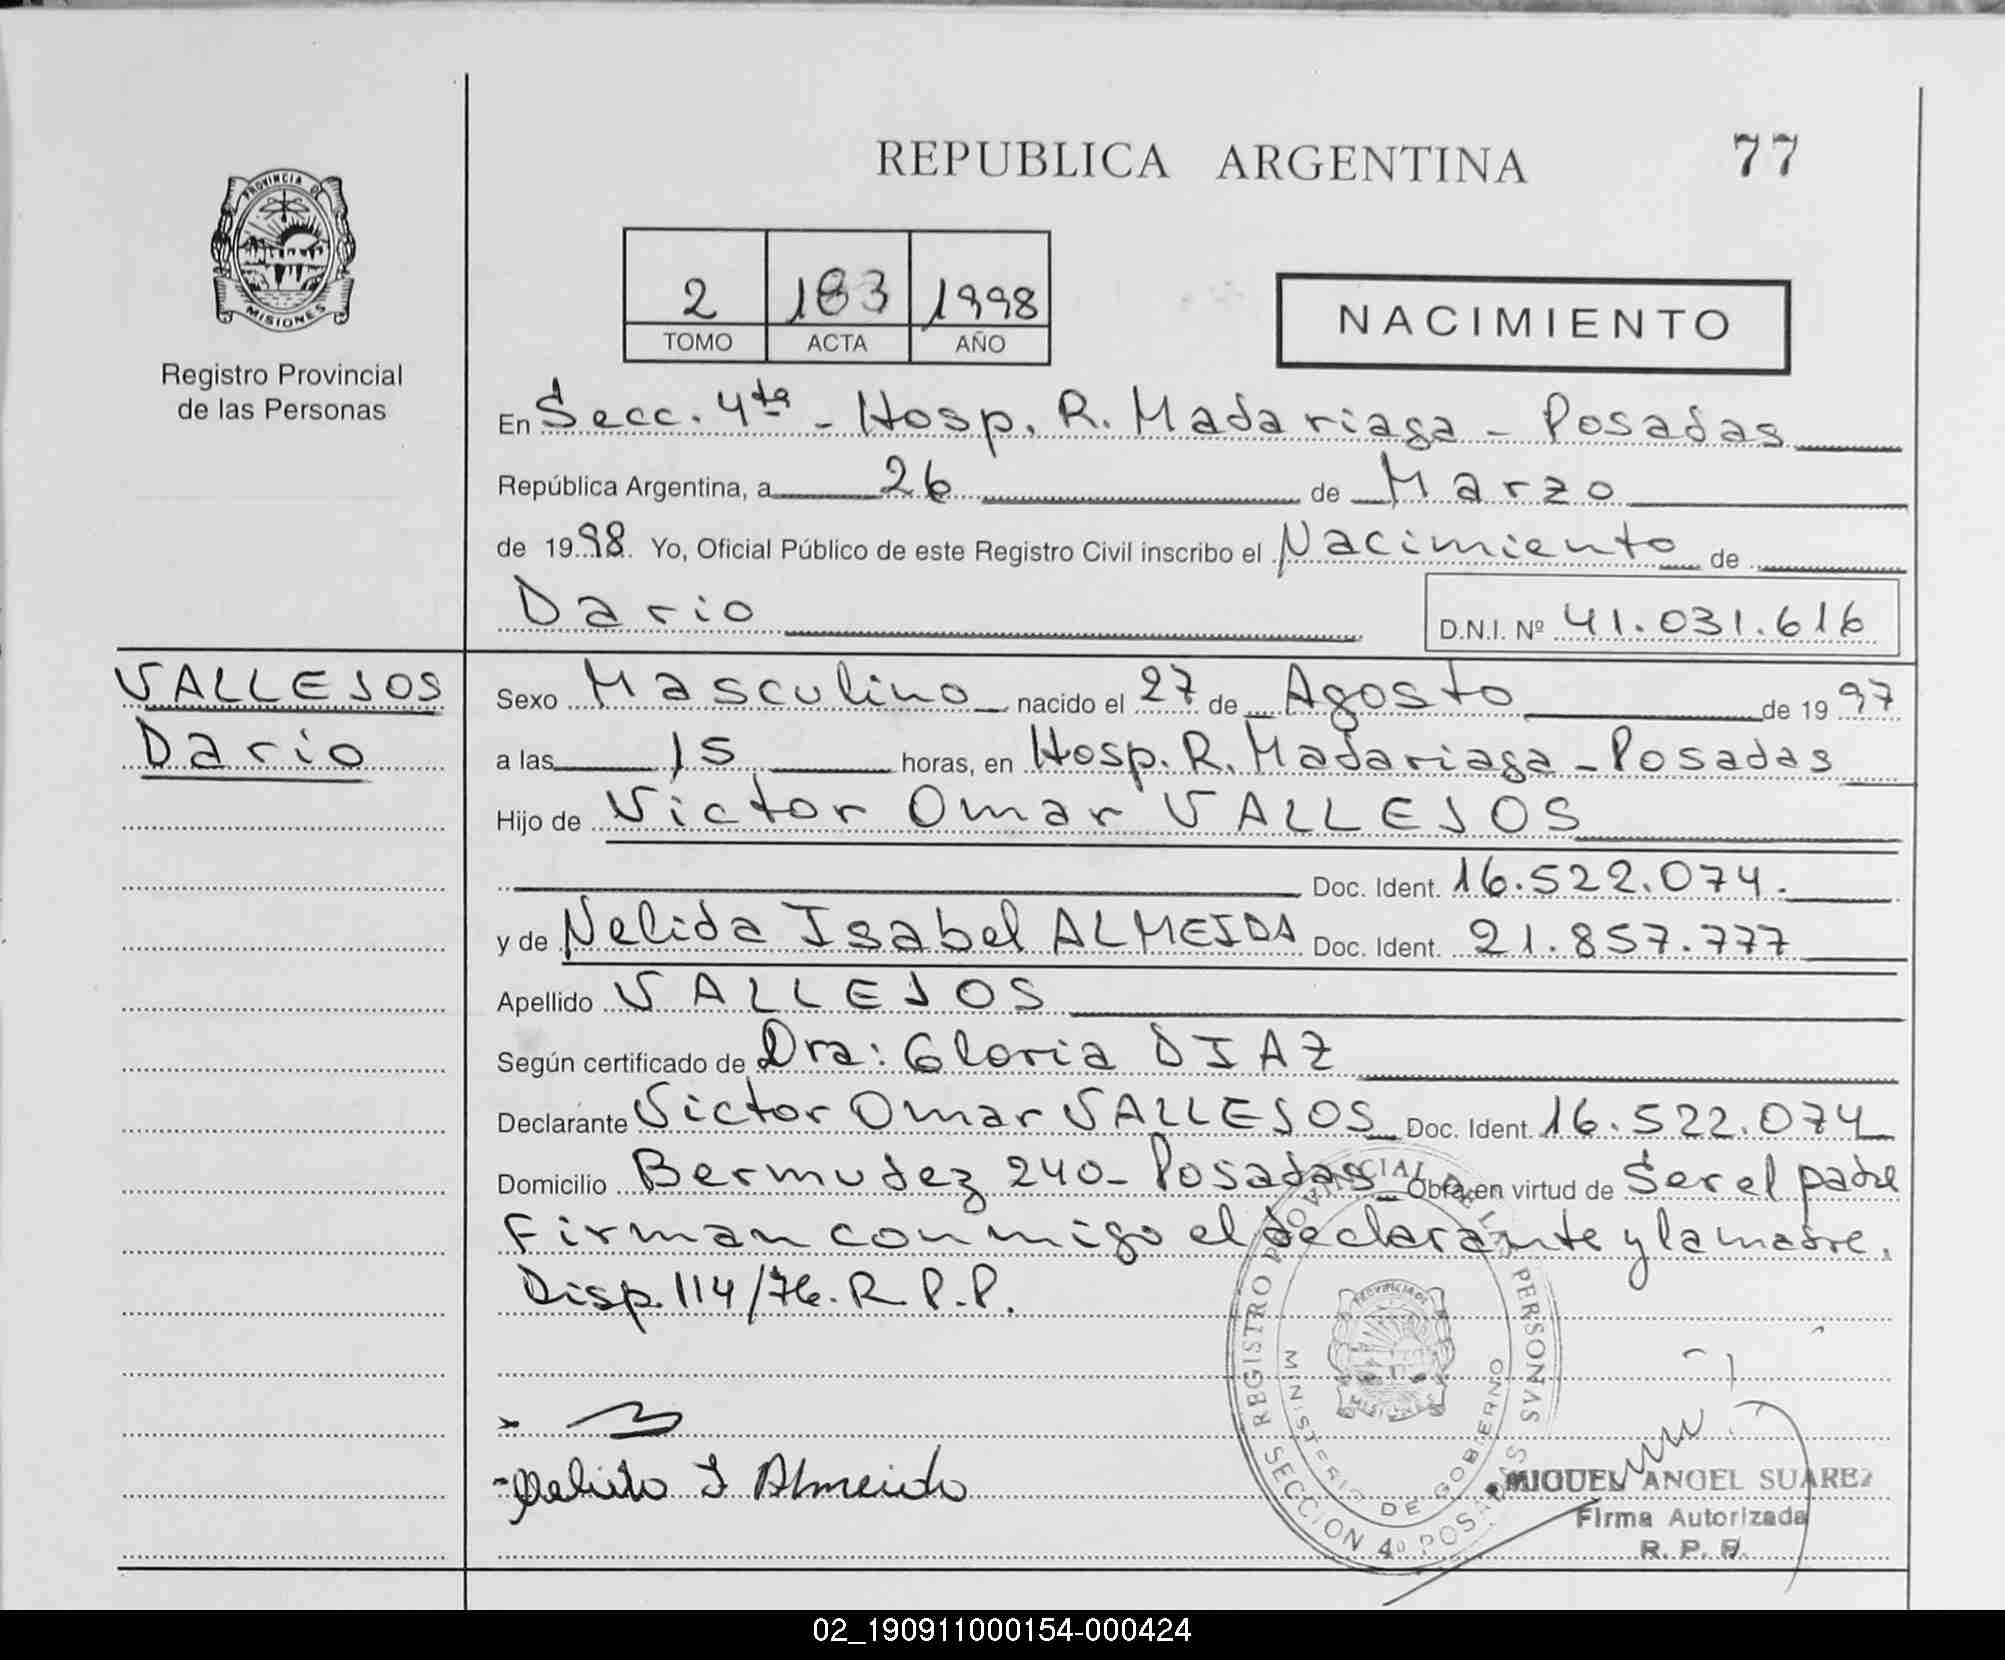 REPUBLICA ARGENTINA
77
PROVINCIA DE
MISIONES
Registro Provincial
de las Personas
2 183 1998
TOMO ACTA AÑO
NACIMIENTO
En Secc. 4ta - Hosp. R. Madariaga - Posadas
República Argentina, a 26 de Marzo
de 1998. Yo, Oficial Público de este Registro Civil inscribo el Nacimiento de
Dario
D.N.I. Nº 41.031.616
VALLEJOS
Dario
Sexo Masculino nacido el 27 de Agosto de 1997
a las 15 horas, en Hosp. R. Madariaga - Posadas
Hijo de Victor Omar VALLEJOS
Doc. Ident. 16.522.074.
y de Nelida Isabel ALMEIDA Doc. Ident. 21.857.777
Apellido VALLEJOS
Según certificado de Dra: Gloria DIAZ
Declarante Victor Omar VALLEJOS Doc. Ident. 16.522.074
Domicilio Bermudez 240 - Posadas Obra en virtud de Ser el padre
Firman conmigo el declarante y la madre.
Disp. 114/76. R.P.P.
REGISTRO PROVINCIAL DE LAS PERSONAS
MINISTERIO DE GOBIERNO
SECCION 4º POSADAS
I Almeida
MIGUEL ANGEL SUAREZ
Firma Autorizada
R. P. P.
02_190911000154-000424